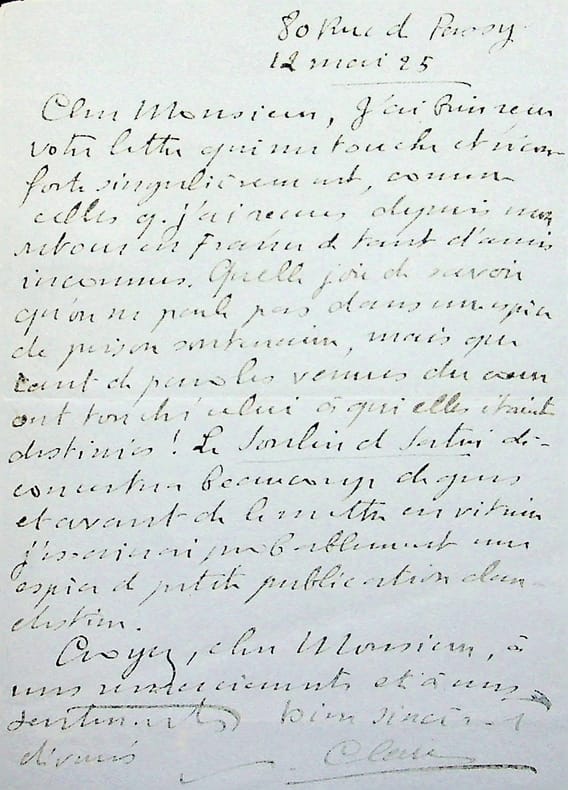 80 Rue de Passy
12 mai 25
Cher Monsieur, j'ai bien reçu
votre lettre qui me touche et récon-
forte singulièrement, comme
celles q. j'ai reçues depuis mon
retour en France de tant d'amis
inconnus. Quelle joie de savoir
qu'on ne parle pas dans une espèce
de prison souterraine, mais que
tant de paroles venues du cœur
ont touché celui à qui elles étaient
destinées ! Le Soulier de Satin dé-
concertera beaucoup de gens
et avant de le mettre en vitrine
j'essaierai probablement une
espèce de petite publication clan-
destine.
Croyez, cher Monsieur, à
mes remerciements et à mes
sentiments bien sincèrement
dévoués